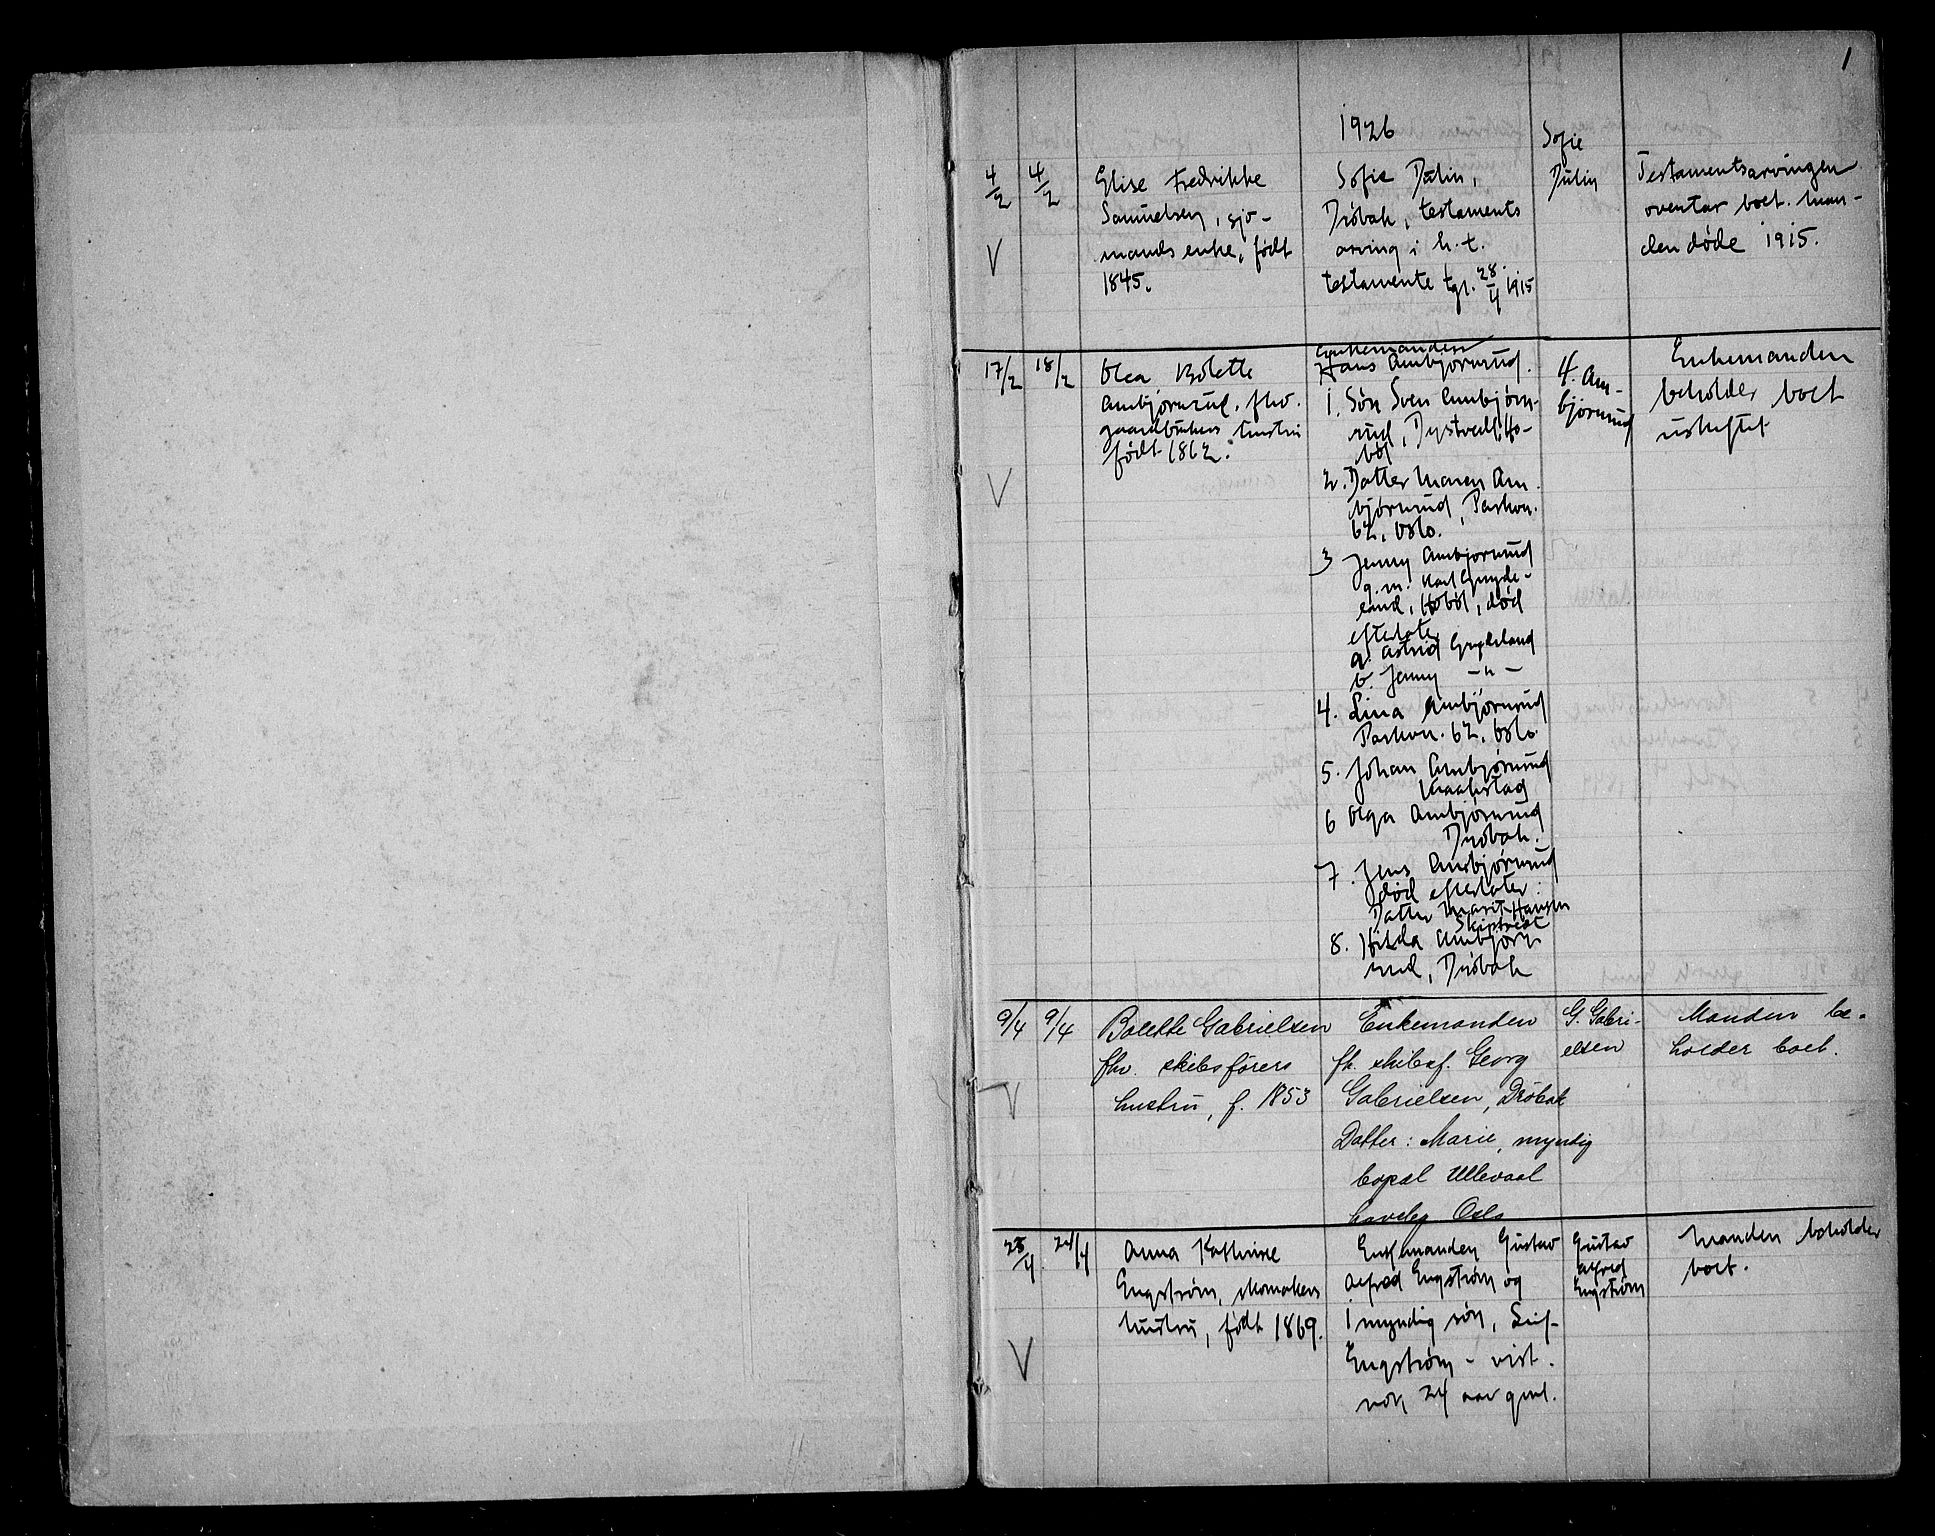 1
1926
4/2 4/2
Elise Fredrikke
Samuelsen, sjø-
mands enke, født
1845.
Sofie Dulin,
Drøbak, testaments
arving i h. t.
testamente tgl. 28/4 1915
Sofie
Dulin
Testamentsarvingen
overtar boet. Man-
den døde 1915.
V
17/2 18/2
Olea Bolette
Ambjørnrud, fhv.
gaardbrukers hustru
født 1862.
Enkemanden
Hans Ambjørnrud.
1. Søn Sven Ambjørn-
rud, Dystvedt, Ho-
bøl
2. Datter Maren Am
bjørnrud, Parkvn.
62, Oslo.
3 Jenny Ambjørnrud
g. m. Karl Gryde-
land, Hobøl, død
efterlater
a. Astrid Grydeland
b. Jenny -"-
4. Lina Ambjørnrud
Parkvn. 62, Oslo.
5. Johan Ambjørnrud
Kraakstad
6 Olga Ambjørnrud
Drøbak.
7. Jens Ambjørnrud
død efterlater:
Datter Marit Hansen
Skiptvedt
8. Hilda Ambjørn
rud, Drøbak
H. Am-
bjørnrud
Enkemanden
beholder boet
uskiftet
V
9/4 9/4
Bolette Gabrielsen
fhv. skibsførers
hustru, f. 1853
Enkemanden
fh. skibsf. Georg
Gabrielsen, Drøbak
Datter: Marie, myndig
bopæl Ullevaal
haveby Oslo
G. Gabri-
elsen
Manden be-
holder boet.
V
23/4 24/4
Anna Kathrine
Engstrøm, skomakers
hustru, født 1869.
Enkemanden Gustav
Alfred Engstrøm og
1 myndig søn, Leif
Engstrøm - vist.
nok 24 aar gml.
Gustav
Alfred
Engstrøm
Manden beholder
boet.
V